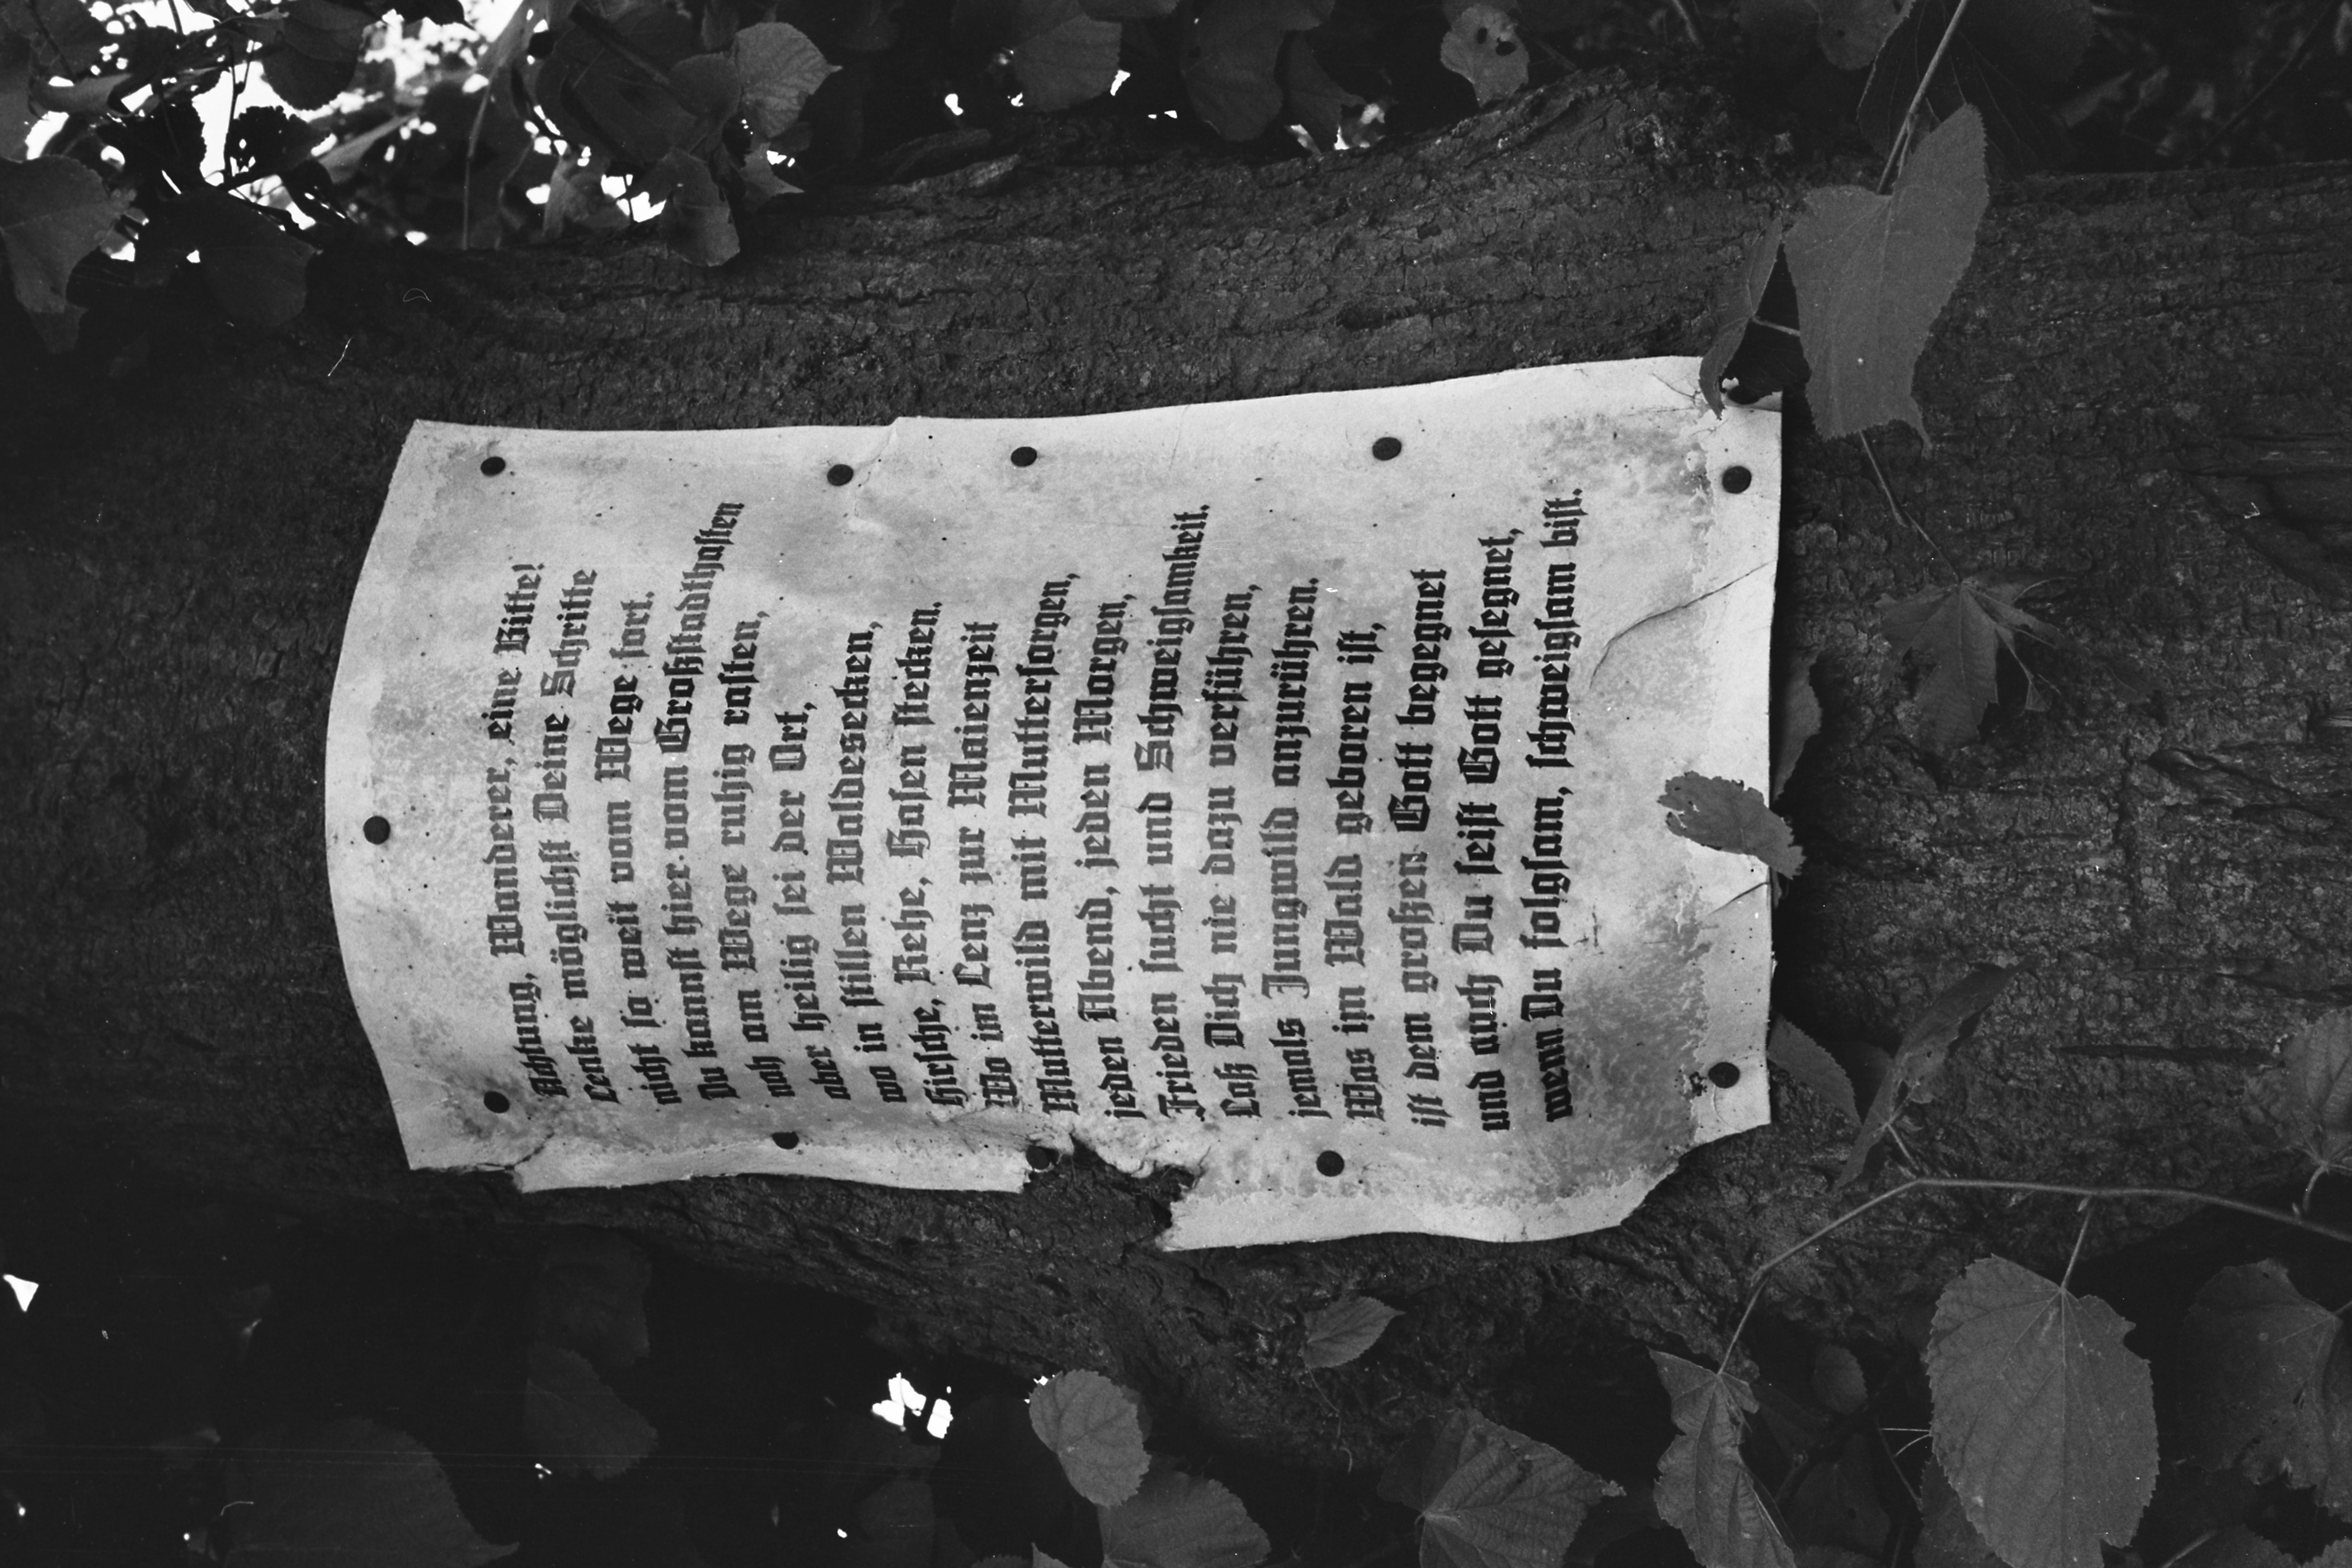 Achtung, Wanderer, eine Bitte!
Lenke möglichst Deine Schritte
nicht so weit vom Wege fort.
Du kannst hier vom Großstadthasten
nah am Wege ruhig rasten,
aber heilig sei der Ort,
wo in stillen Waldesecken,
Hirsche, Rehe, Hasen stecken.
Wo im Lenz zur Maienzeit
Mutterwild mit Muttersorgen,
jeden Abend, jeden Morgen,
Frieden sucht und Schweigsamkeit.
Laß Dich nie dazu verführen,
jemals Jungwild anzurühren.
Was im Wald geboren ist,
ist dem großen Gott begegnet
und auch Du seist Gott gesegnet,
wenn Du folgsam, schweigsam bist.